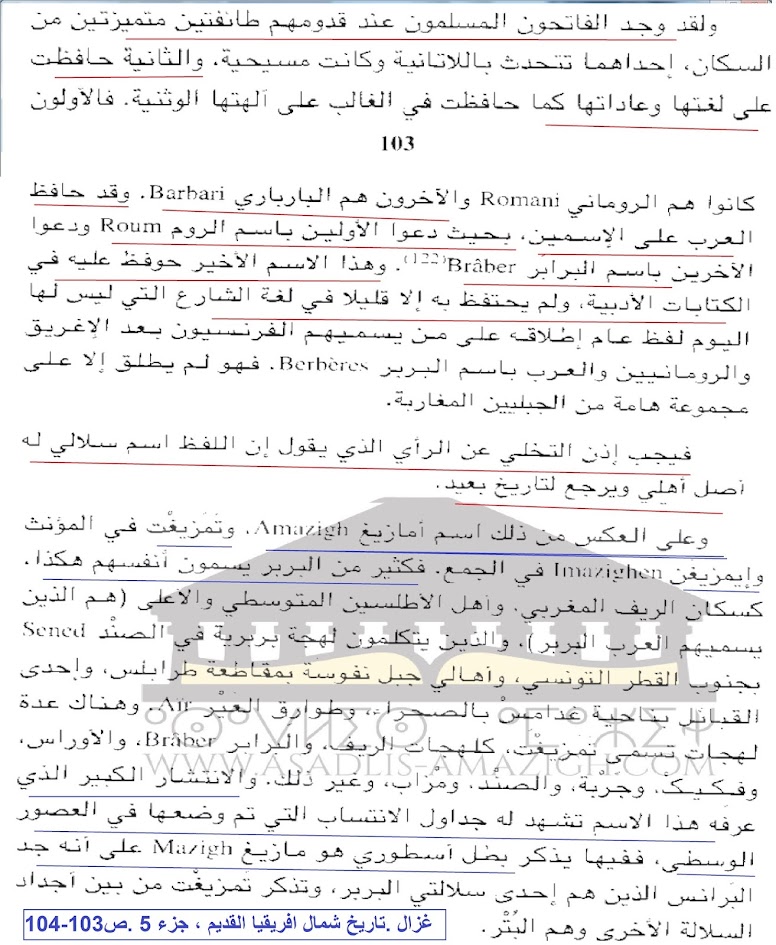 ولقد وجد الفاتحون المسلمون عند قدومهم طائفتين متميزتين من
السكان، إحداهما تتحدث باللاتانية وكانت مسيحية. والثانية حافظت
على لغتها وعاداتها كما حافظت في الغالب على آلهتها الوثنية. فالأولون
103
كانوا هم الروماني Romani والآخرون هم البارباري Barbari. وقد حافظ
العرب على الإسمين، بحيث دعوا الأولين باسم الروم Roum ودعوا
الآخرين باسم البرابر Brâber(122). وهذا الاسم الأخير حوفظ عليه في
الكتابات الأدبية، ولم يحتفظ به إلا قليلا في لغة الشارع التي ليس لها
اليوم لفظ عام إطلاقه على من يسميهم الفرنسيون بعد الإغريق
والرومانيين والعرب باسم البربر Berbères. فهو لم يطلق إلا على
مجموعة هامة من الجبليين المغاربة.
فيجب إذن التخلي عن الرأي الذي يقول إن اللفظ اسم سلالي له
أصل أهلي ويرجع لتاريخ بعيد.
وعلى العكس من ذلك اسم أمازيغ Amazigh، وتَمَزيغْت في المؤنث
وإيمزيغن Imazighen في الجمع. فكثير من البربر يسمون أنفسهم هكذا.
كسكان الريف المغربي. وأهل الأطلسين المتوسطي والأعلى (هم الذين
يسميهم العرب البربر). والذين يتكلمون لهجة بربرية في الصنْد Sened
بجنوب القطر التونسي، وأهالي جبل نفوسة بمقاطعة طرابلس، وإحدى
القبائل بناحية غدامسْ بالصحراء، وطوارق الغَيْر Aïr. وهناك عدة
لهجات تسمى تَمَزيغْت، كلهجات الريف، والبرابر Brâber، والأوراس،
وفـكـيـكْ. وجرْبة، والصنْد. ومزْاب، وغير ذلك. والانتشار الكبير الذي
عرفه هذا الاسم تشهد له جداول الانتساب التي تم وضعها في العصور
الوسطى، ففيها يذكر بطل أسطوري هو مازيغ Mazigh على أنه جد
البَرانس الذين هم إحدى سلالتي البربر، وتذكر تَمزيغْت من بين أجداد
السلالة الأخرى وهم البُتْر.
ⴰⵙⴰⴷⵍⵉⵙ ⴰⵎⴰⵣⵉⵖ
WWW.ASADLIS-AMAZIGH.COM
غزال .تاريخ شمال افريقيا القديم ، جزء 5 .ص103-104